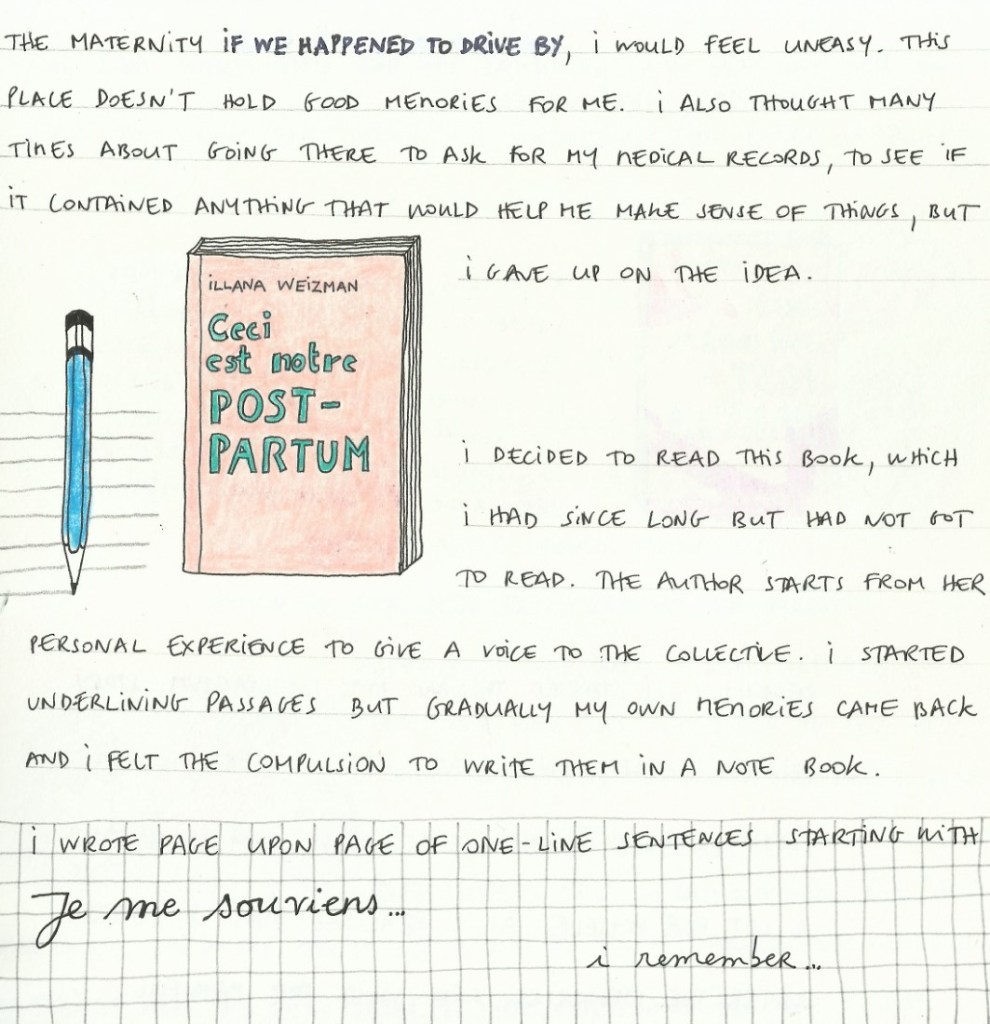 THE MATERNITY iF WE HAPPENED TO DRiVE BY, i WOULD FEEL UNEASY. THiS
PLACE DOESN'T HOLD GOOD MEMORIES FOR ME. i ALSO THOUGHT MANY
TiMES ABOUT GOiNG THERE TO ASK FOR MY MEDICAL RECORDS, TO SEE iF
iT CONTAiNED ANYTHiNG THAT WOULD HELP ME MAKE SENSE OF THiNGS, BUT
i GAVE UP ON THE iDEA.
iLLANA WEiZMAN
Ceci
est notre
POST-
PARTUM
i DECiDED TO READ THiS BOOK, WHiCH
i HAD SiNCE LONG BUT HAD NOT GOT
TO READ. THE AUTHOR STARTS FROM HER
PERSONAL EXPERiENCE TO GiVE A VOiCE TO THE COLLECTiVE. i STARTED
UNDERLiNiNG PASSAGES BUT GRADUALLY MY OWN MEMORiES CAME BACK
AND i FELT THE COMPULSiON TO WRiTE THEM iN A NOTE BOOK.
i WROTE PAGE UPON PAGE OF ONE-LiNE SENTENCES STARTiNG WiTH
Je me souviens...
i remember...